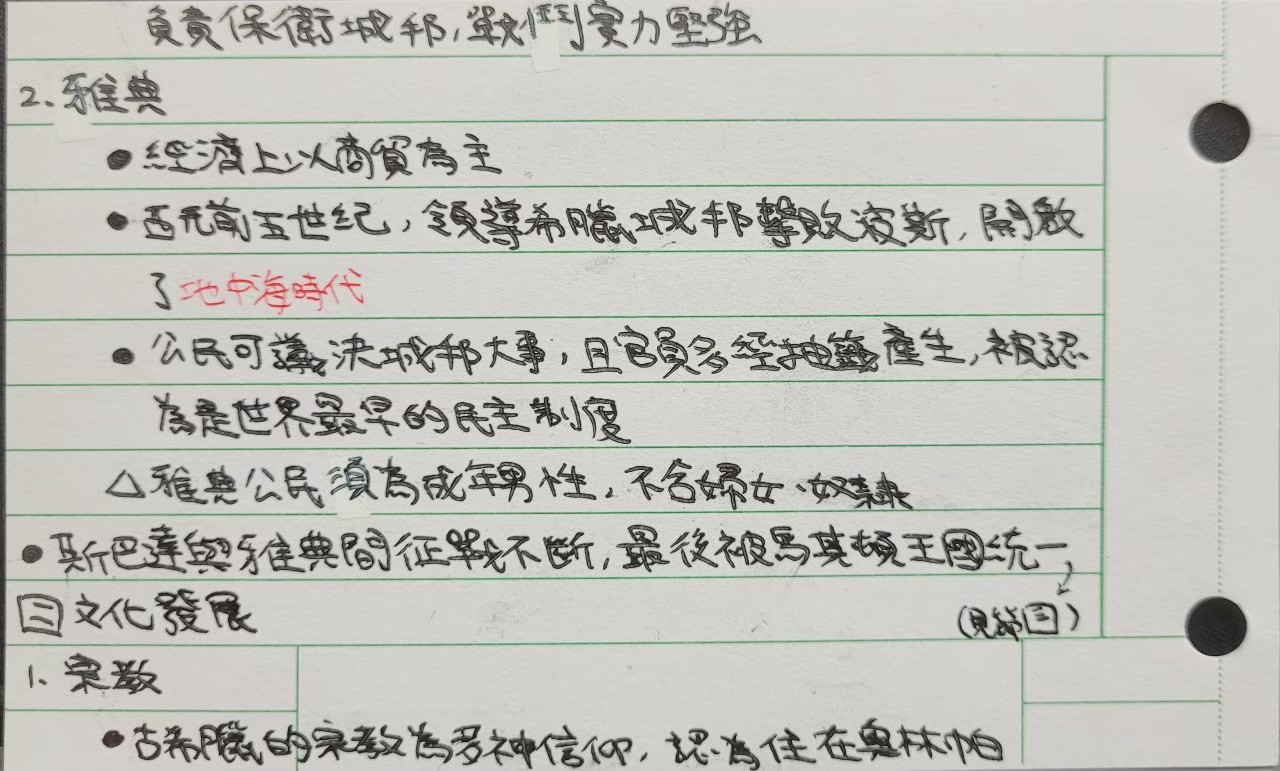 負責保衛城邦，戰鬥實力堅強
2. 雅典
● 經濟上以商貿為主
● 西元前五世紀，領導希臘城邦擊敗波斯，開啟
了地中海時代
● 公民可議決城邦大事，且官員多經抽籤產生，被認
為是世界最早的民主制度
△ 雅典公民須為成年男性，不含婦女、奴隸
● 斯巴達與雅典間征戰不斷，最後被馬其頓王國統一，
三 文化發展
(見節四)
1. 宗教
● 古希臘的宗教為多神信仰，認為住在奧林帕